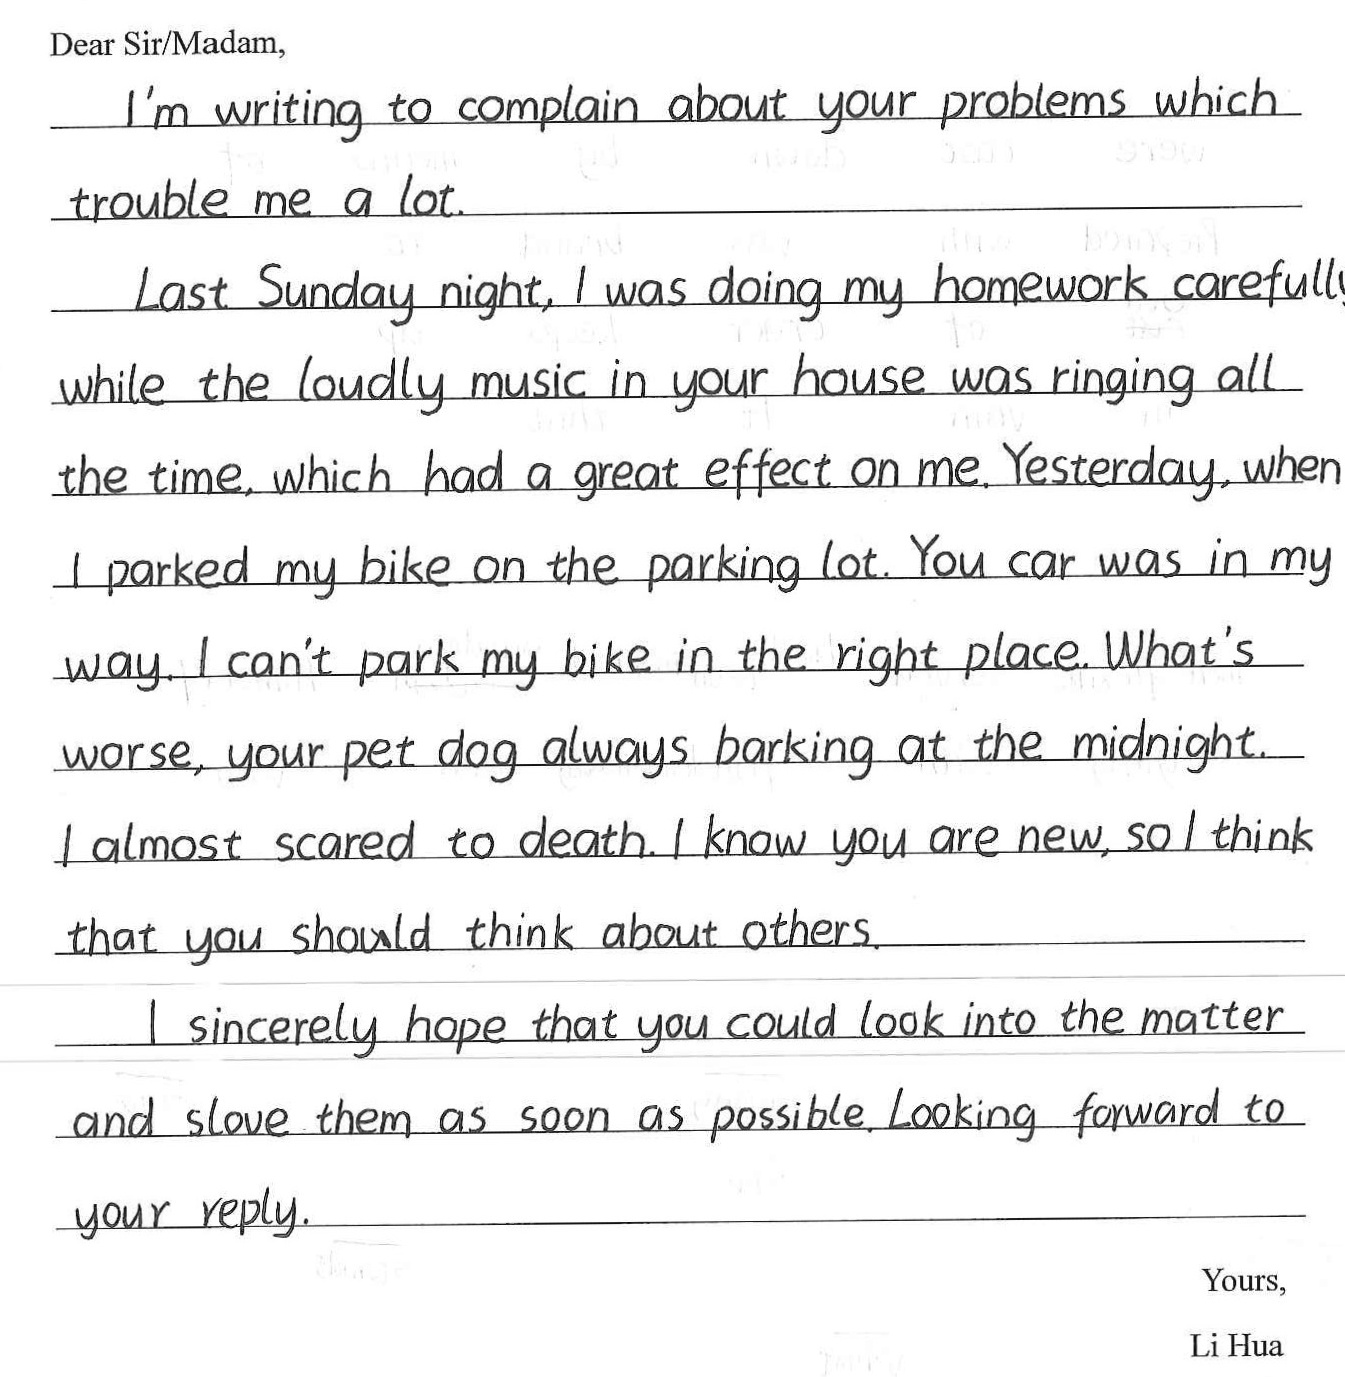 Dear Sir/Madam,
I'm writing to complain about your problems which
trouble me a lot.
Last Sunday night, I was doing my homework carefully
while the loudly music in your house was ringing all
the time, which had a great effect on me. Yesterday, when
I parked my bike on the parking lot. You car was in my
way. I can't park my bike in the right place. What's
worse, your pet dog always barking at the midnight.
I almost scared to death. I know you are new, so I think
that you should think about others.
I sincerely hope that you could look into the matter
and slove them as soon as possible. Looking forward to
your reply.
Yours,
Li Hua